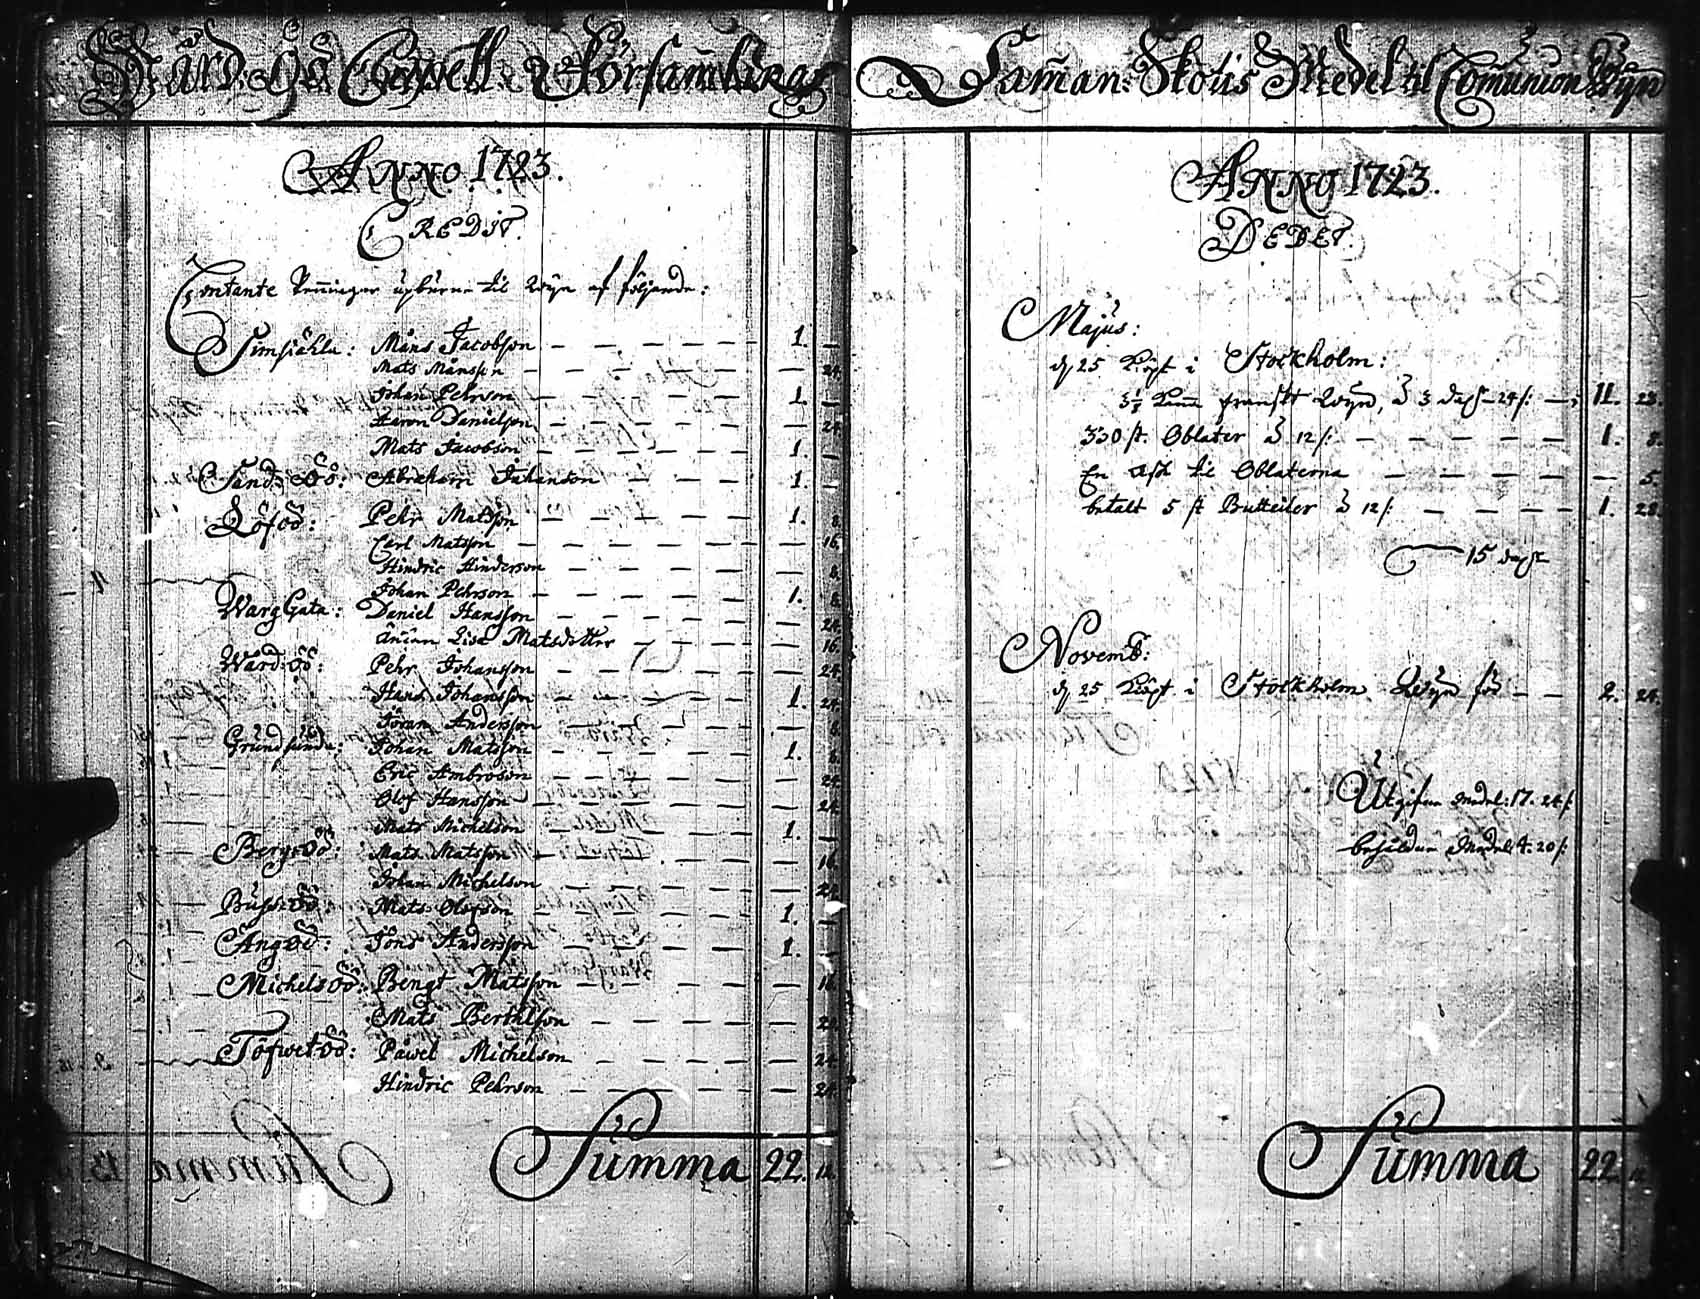 Wård:öö Capell Församlings
ANNO 1723.
CREDIT.
Contante Penningar upburne til Wyn af följande:
Simskähla: Måns Jacobson — 1. —
Mats Månsson — — 24.
Johan Pehrson — 1. —
Aaron Danielson — — 24.
Mats Jacobson — 1. —
Sand:öö: Abraham Johanson — 1. —
Löföö: Pehr Matsson — 1. 8.
Carl Matsson — — 16.
Hindric Hinderson — — 8.
Johan Pehrson — 1. 8.
WargGata: Daniel Hansson — — 24.
Lisa Matsdotter — — 16.
Wård:öö: Pehr Johansson — — 24.
Hans Johansson — 1. 24.
Jöran Andersson — — 8.
Grundsunda: Johan Matsson — 1. 8.
Eric Ambroson — — 24.
Olof Hansson — — 24.
Mats Michelson — 1. —
Bergöö: Mats Matsson — — 16.
Johan Michelson — — 24.
Bussöö: Mats Olofson — 1. —
Ängöö: Jöns Andersson — 1. —
Michelsöö: Bengt Matsson — — 16.
Mats Berthilson — —
Töfwetöö: Påwel Michelson — — 24.
Hindric Pehrson — — 24.
Summa 22.
Saman:Skotts Medel til Comunion Wyn
ANNO 1723.
DEBET.
Majus:
d 25 Köpt i Stockholm:
franskt Wyn, à 3 24/: — 11. 23.
330 st. Oblater à 12/: — 1. 8.
En Ask til Oblaterna — — 5.
betalt 5 st Butteiler à 12/: — 1. 28.
15
Novemb:
d 25 Köpt i Stockholm Wyn för — 2. 24.
Utgifne Medel: 17. 24/:
behåldne Medel 4. 20/:
Summa 22.